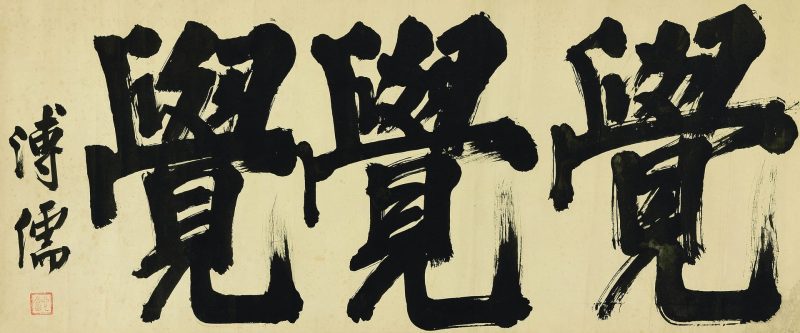 覺覺覺
溥儒